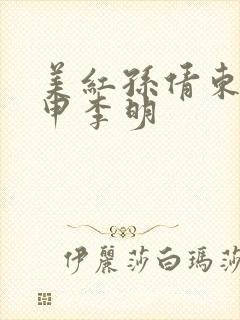 美紅孫倩東
申李明
伊麗莎白瑪莎